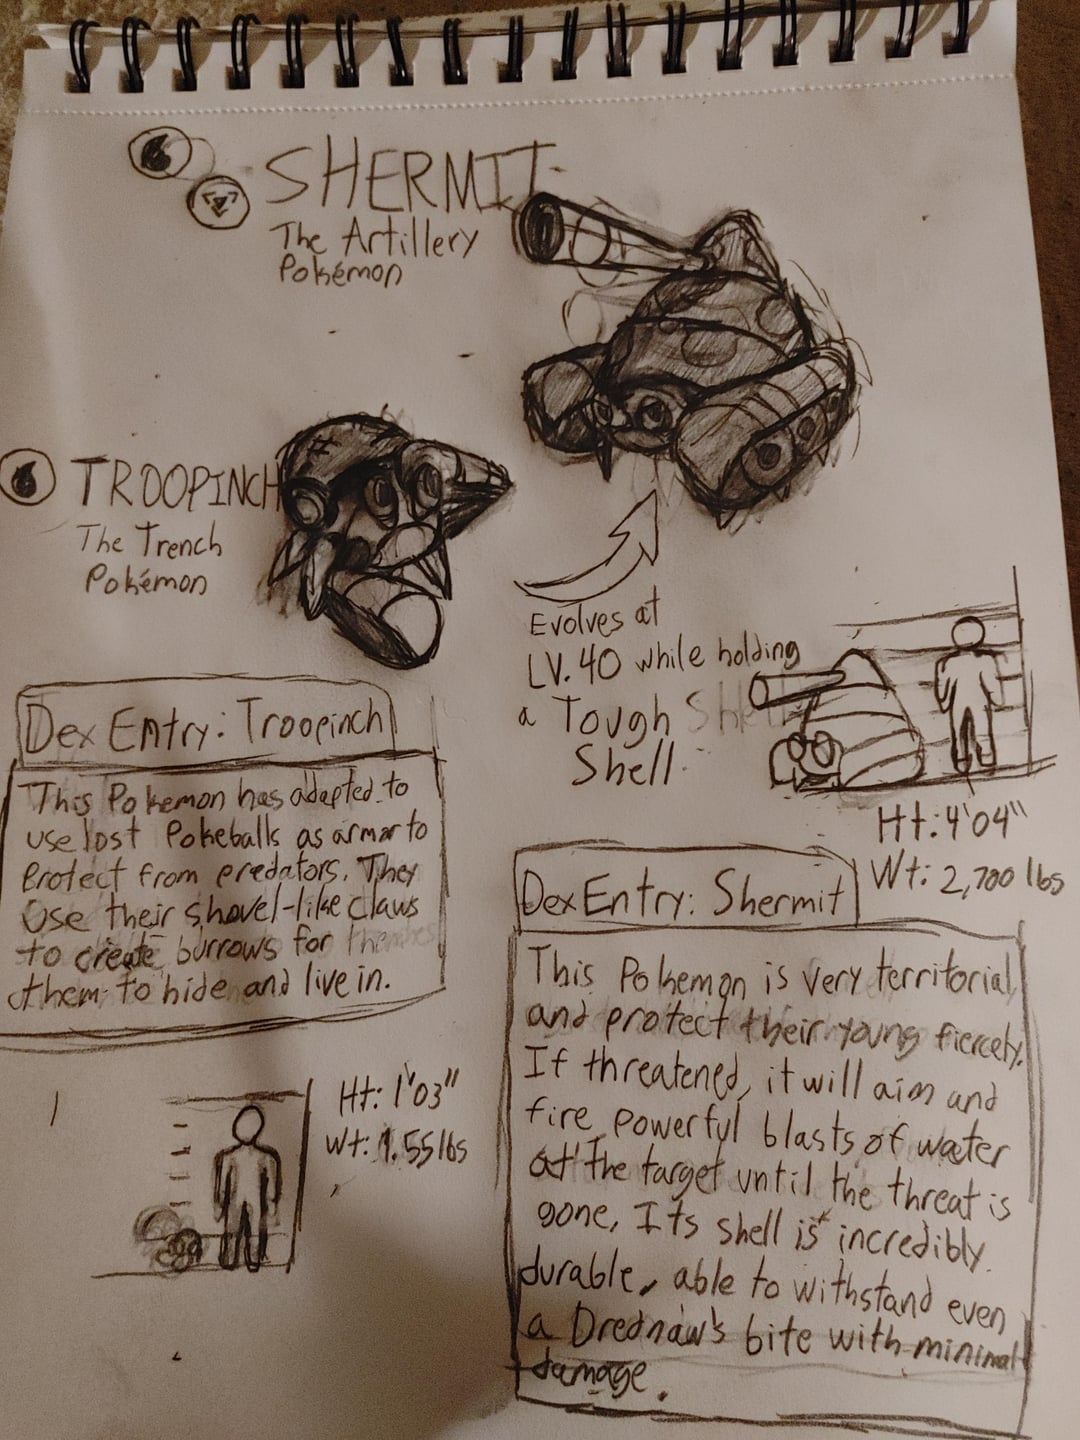 SHERMIT
The Artillery
Pokémon
TROOPINCH
The Trench
Pokémon
Evolves at
LV. 40 while holding
a Tough
Shell
Dex Entry: Troopinch
This Pokemon has adapted to
use lost Pokeballs as armor to
Protect from predators. They
Use their shovel-like claws
to create burrows for
them to hide and live in.
Ht: 1'03"
Wt: 1.55 lbs
Ht: 4'04"
Wt: 2,700 lbs
Dex Entry: Shermit
This Pokemon is very territorial
and protect their young fiercely.
If threatened, it will aim and
fire powerful blasts of water
at the target until the threat is
gone, Its shell is incredibly
durable, able to withstand even
a Drednaw's bite with minimal
damage.